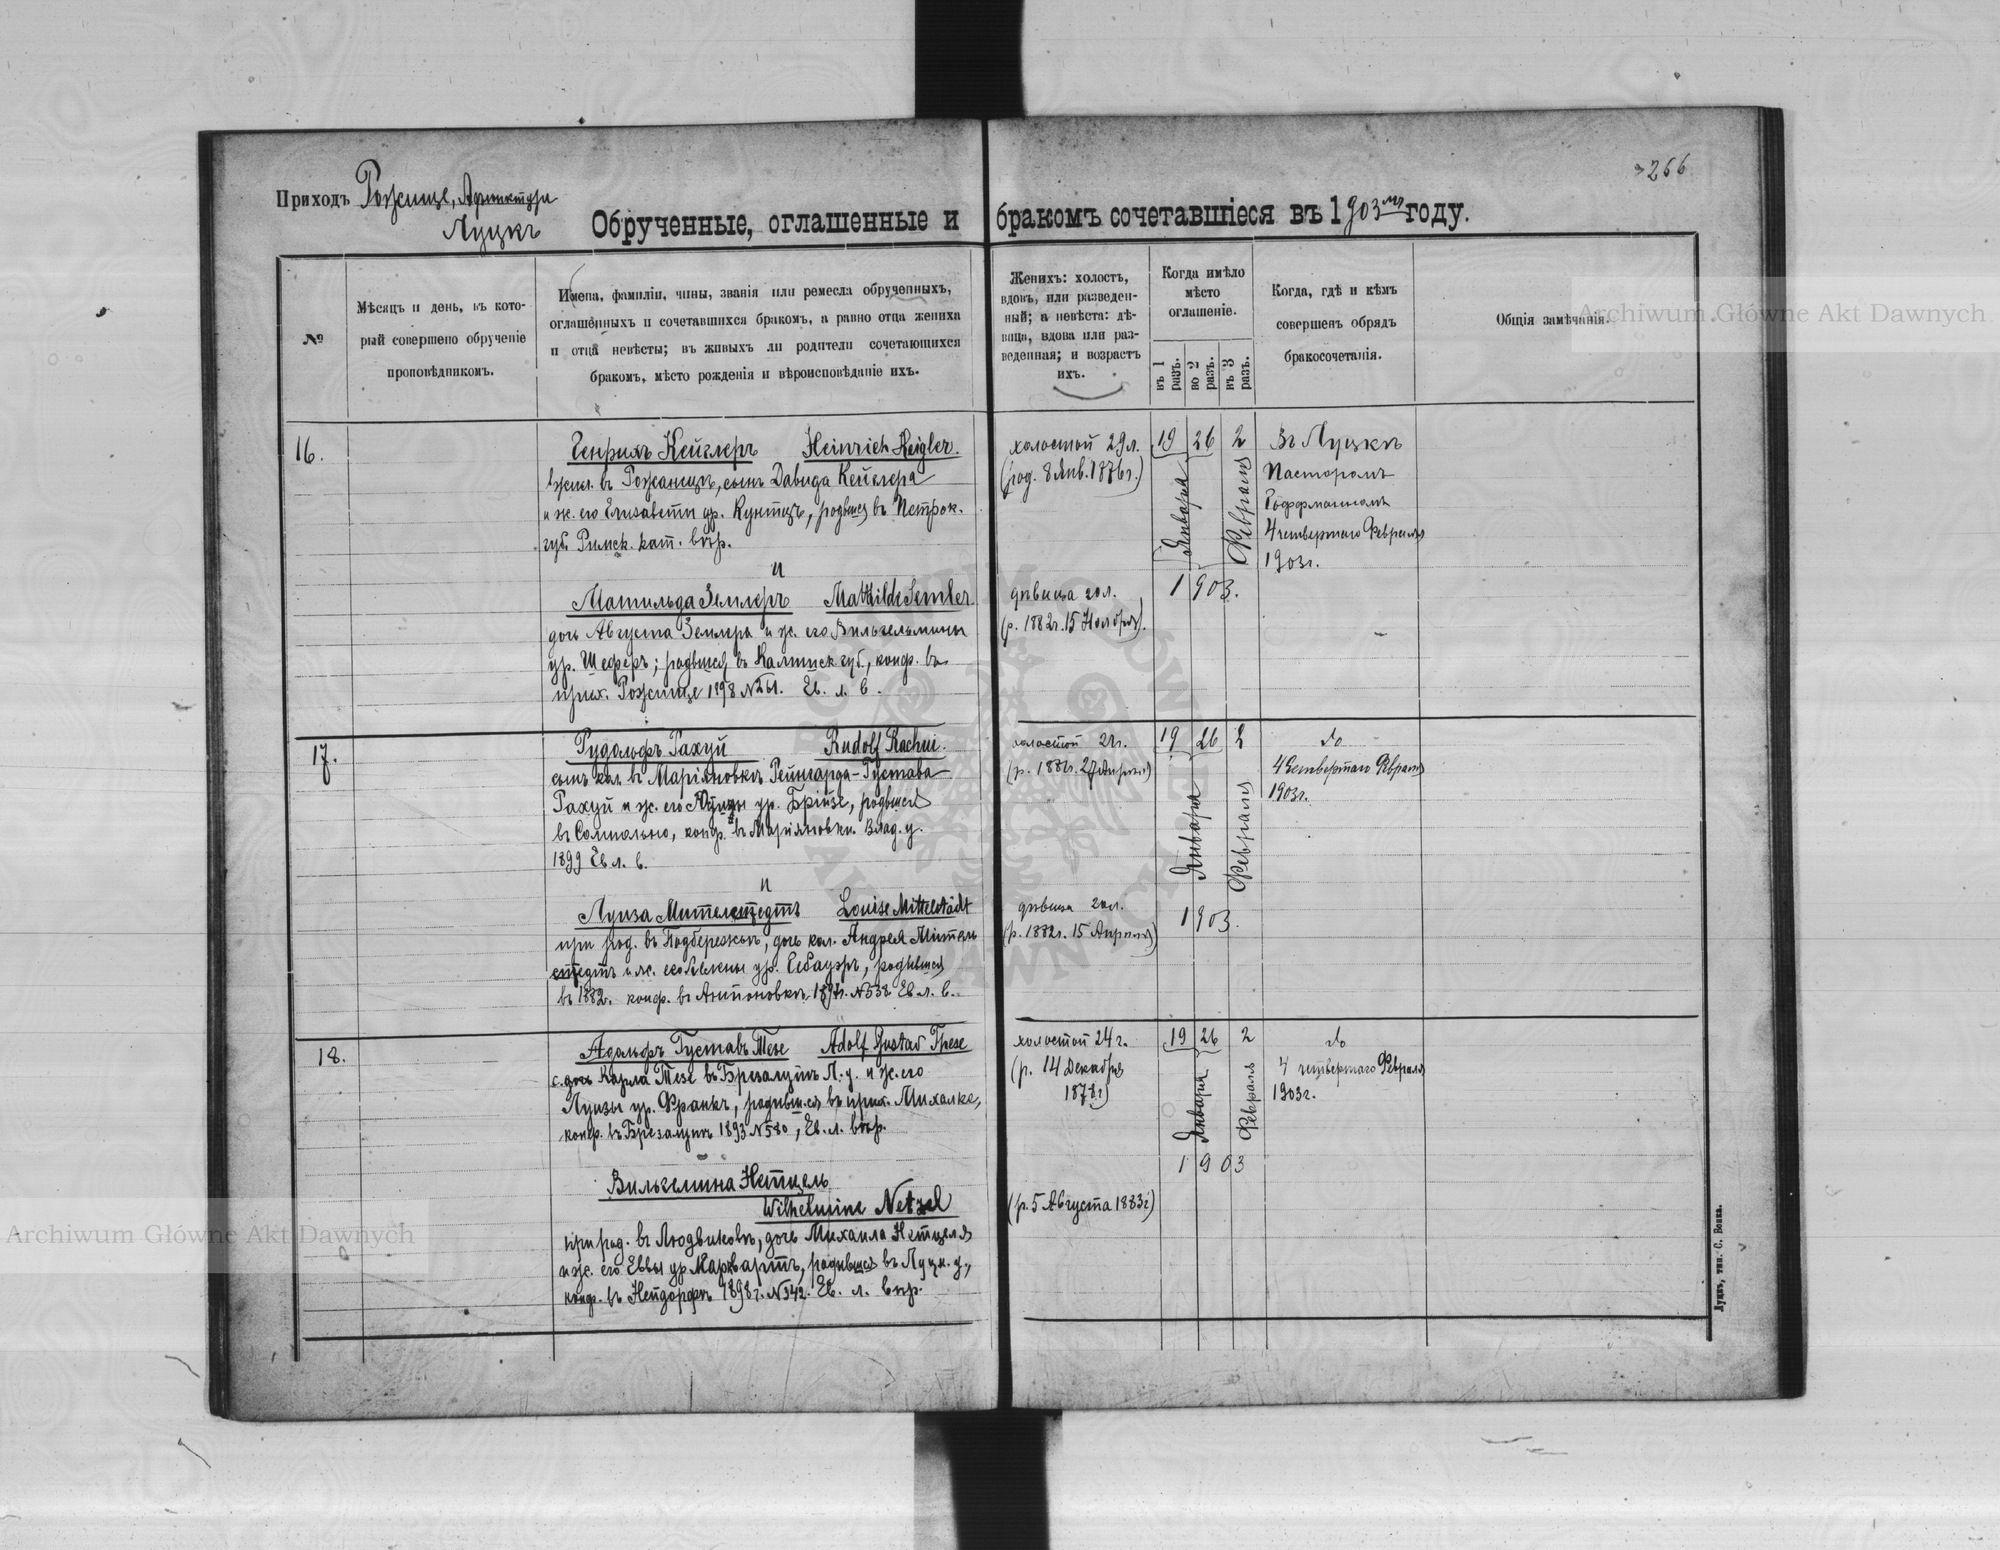 266
Приходъ Рожище, Адъюнктура
Луцкъ
Обрученные, оглашенные и бракомъ сочетавшіеся въ 1903му году.
№
Мѣсяцъ и день, въ кото-
рый совершено обрученіе
проповѣдникомъ.
Имена, фамиліи, чины, званія или ремесла обрученныхъ,
оглашенныхъ и сочетавшихся бракомъ, а равно отца жениха
и отца невѣсты; въ живыхъ ли родители сочетающихся
бракомъ, мѣсто рожденія и вѣроисповѣданіе ихъ.
Женихъ: холостъ,
вдовъ, или разведен-
ный; а невѣста: дѣ-
вица, вдова или раз-
веденная; и возрастъ
ихъ.
Когда имѣло
мѣсто
оглашеніе.
въ 1 разъ.
во 2 разъ.
въ 3 разъ.
Когда, гдѣ и кѣмъ
совершенъ обрядъ
бракосочетанія.
Общія замѣчанія.
16.
Генрихъ Кейглеръ Heinrich Keigler.
въ Рожанцѣ, сынъ Давида Кейглера
и ж. его Елизаветы ур. Кунтцъ, родвшся въ Петрок.
губ. Римск. кат. вѣр.
и
Матильда Землеръ Mathilde Semler
дочь Августа Землера и ж. его Вильгельмины
ур. Шеферъ; родвшся въ Калишск губ., конф. въ
прих. Рожище 1898 №261. Ев. л. в.
холостой 29л.
(род. 8 Янв. 1876г.)
дѣвица 20л.
(р. 1882г. 15 Ноября).
19 26 2
Января
Февраля
1903.
Въ Луцкѣ
Пасторомъ
4 четвертаго Февраля
1903г.
17.
Рудольфъ Рахуй Rudolf Rachui.
сынъ кол. въ Маріяновкѣ Рейнгарда-Густава
Рахуй и ж. его ур. Брійзе, родвшся
въ конф. въ Маріяновкѣ Влад. у.
1899 Ев л. в.
и
Луиза Мителстедтъ Louise Mittelstädt
при род. въ Подбережьѣ, дочь кол. Андрея Мител
стедтъ и ж. его ур. Гебауэръ, родившся
въ 1882. конф. въ Антоновкѣ 1897г. №538 Ев л. в.
холостой 21г.
дѣвица 20л.
(р. 1882г. 15 Апрѣля)
19 26 2
Января
Февраля
1903.
do
4 Четвертаго Февраля
1903г.
18.
Адольфъ Густавъ Тезе Adolf Gustav These
Карла Тезе въ Брезалупѣ Л. у. и ж. его
Луизы ур. Франкъ, родившся въ прих. Михалке,
конф. въ Брезалупѣ 1893 №580, Ев. л. вѣр.
Вильгелмина Нетцель
Wilhelmine Netzel
при род. въ Людвиковѣ, дочь Михаила Нетцеля
и ж. его Еввы ур Марквартъ, родившся въ Луцк. у.,
конф. въ Нейдорфѣ 1898г. №342. Ев. л. вѣр.
холостой 24г.
(р. 14 Декабря
1878г)
(р. 5 Августа 1883г)
19 26 2
Января
Февраля
1903
do
4 четвертаго Февраля
1903г.
Луцкъ, тип. С. Бокка.
Archiwum Główne Akt Dawnych
Archiwum Główne Akt Dawnych
ARCHIWUM GŁÓWNE AKT DAWNYCH